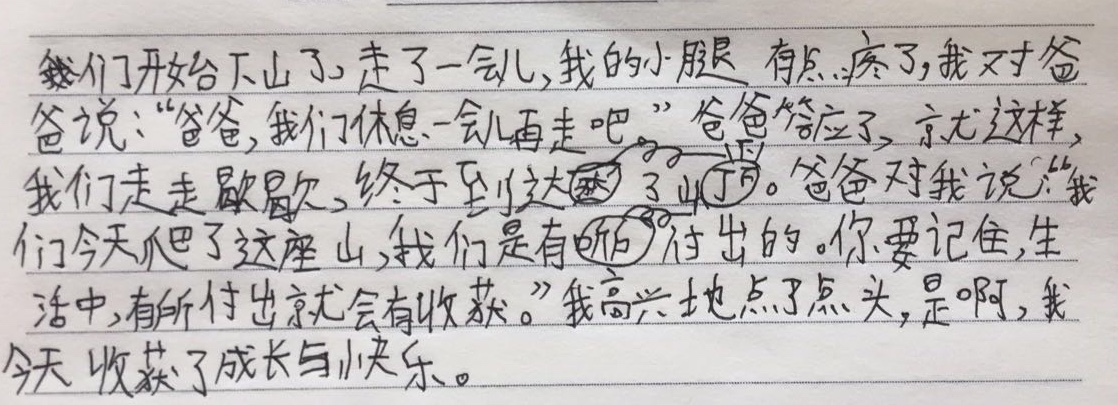 我们开始下山了。走了一会儿,我的小腿有点疼了,我对爸
爸说:“爸爸,我们休息一会儿再走吧。”爸爸答应了,就这样,
我们走走歇歇,终于到达了山顶。爸爸对我说:“我
们今天爬了这座山,我们是有所付出的。你要记住,生
活中,有所付出就会有收获。”我高兴地点了点头,是啊,我
今天收获了成长与快乐。